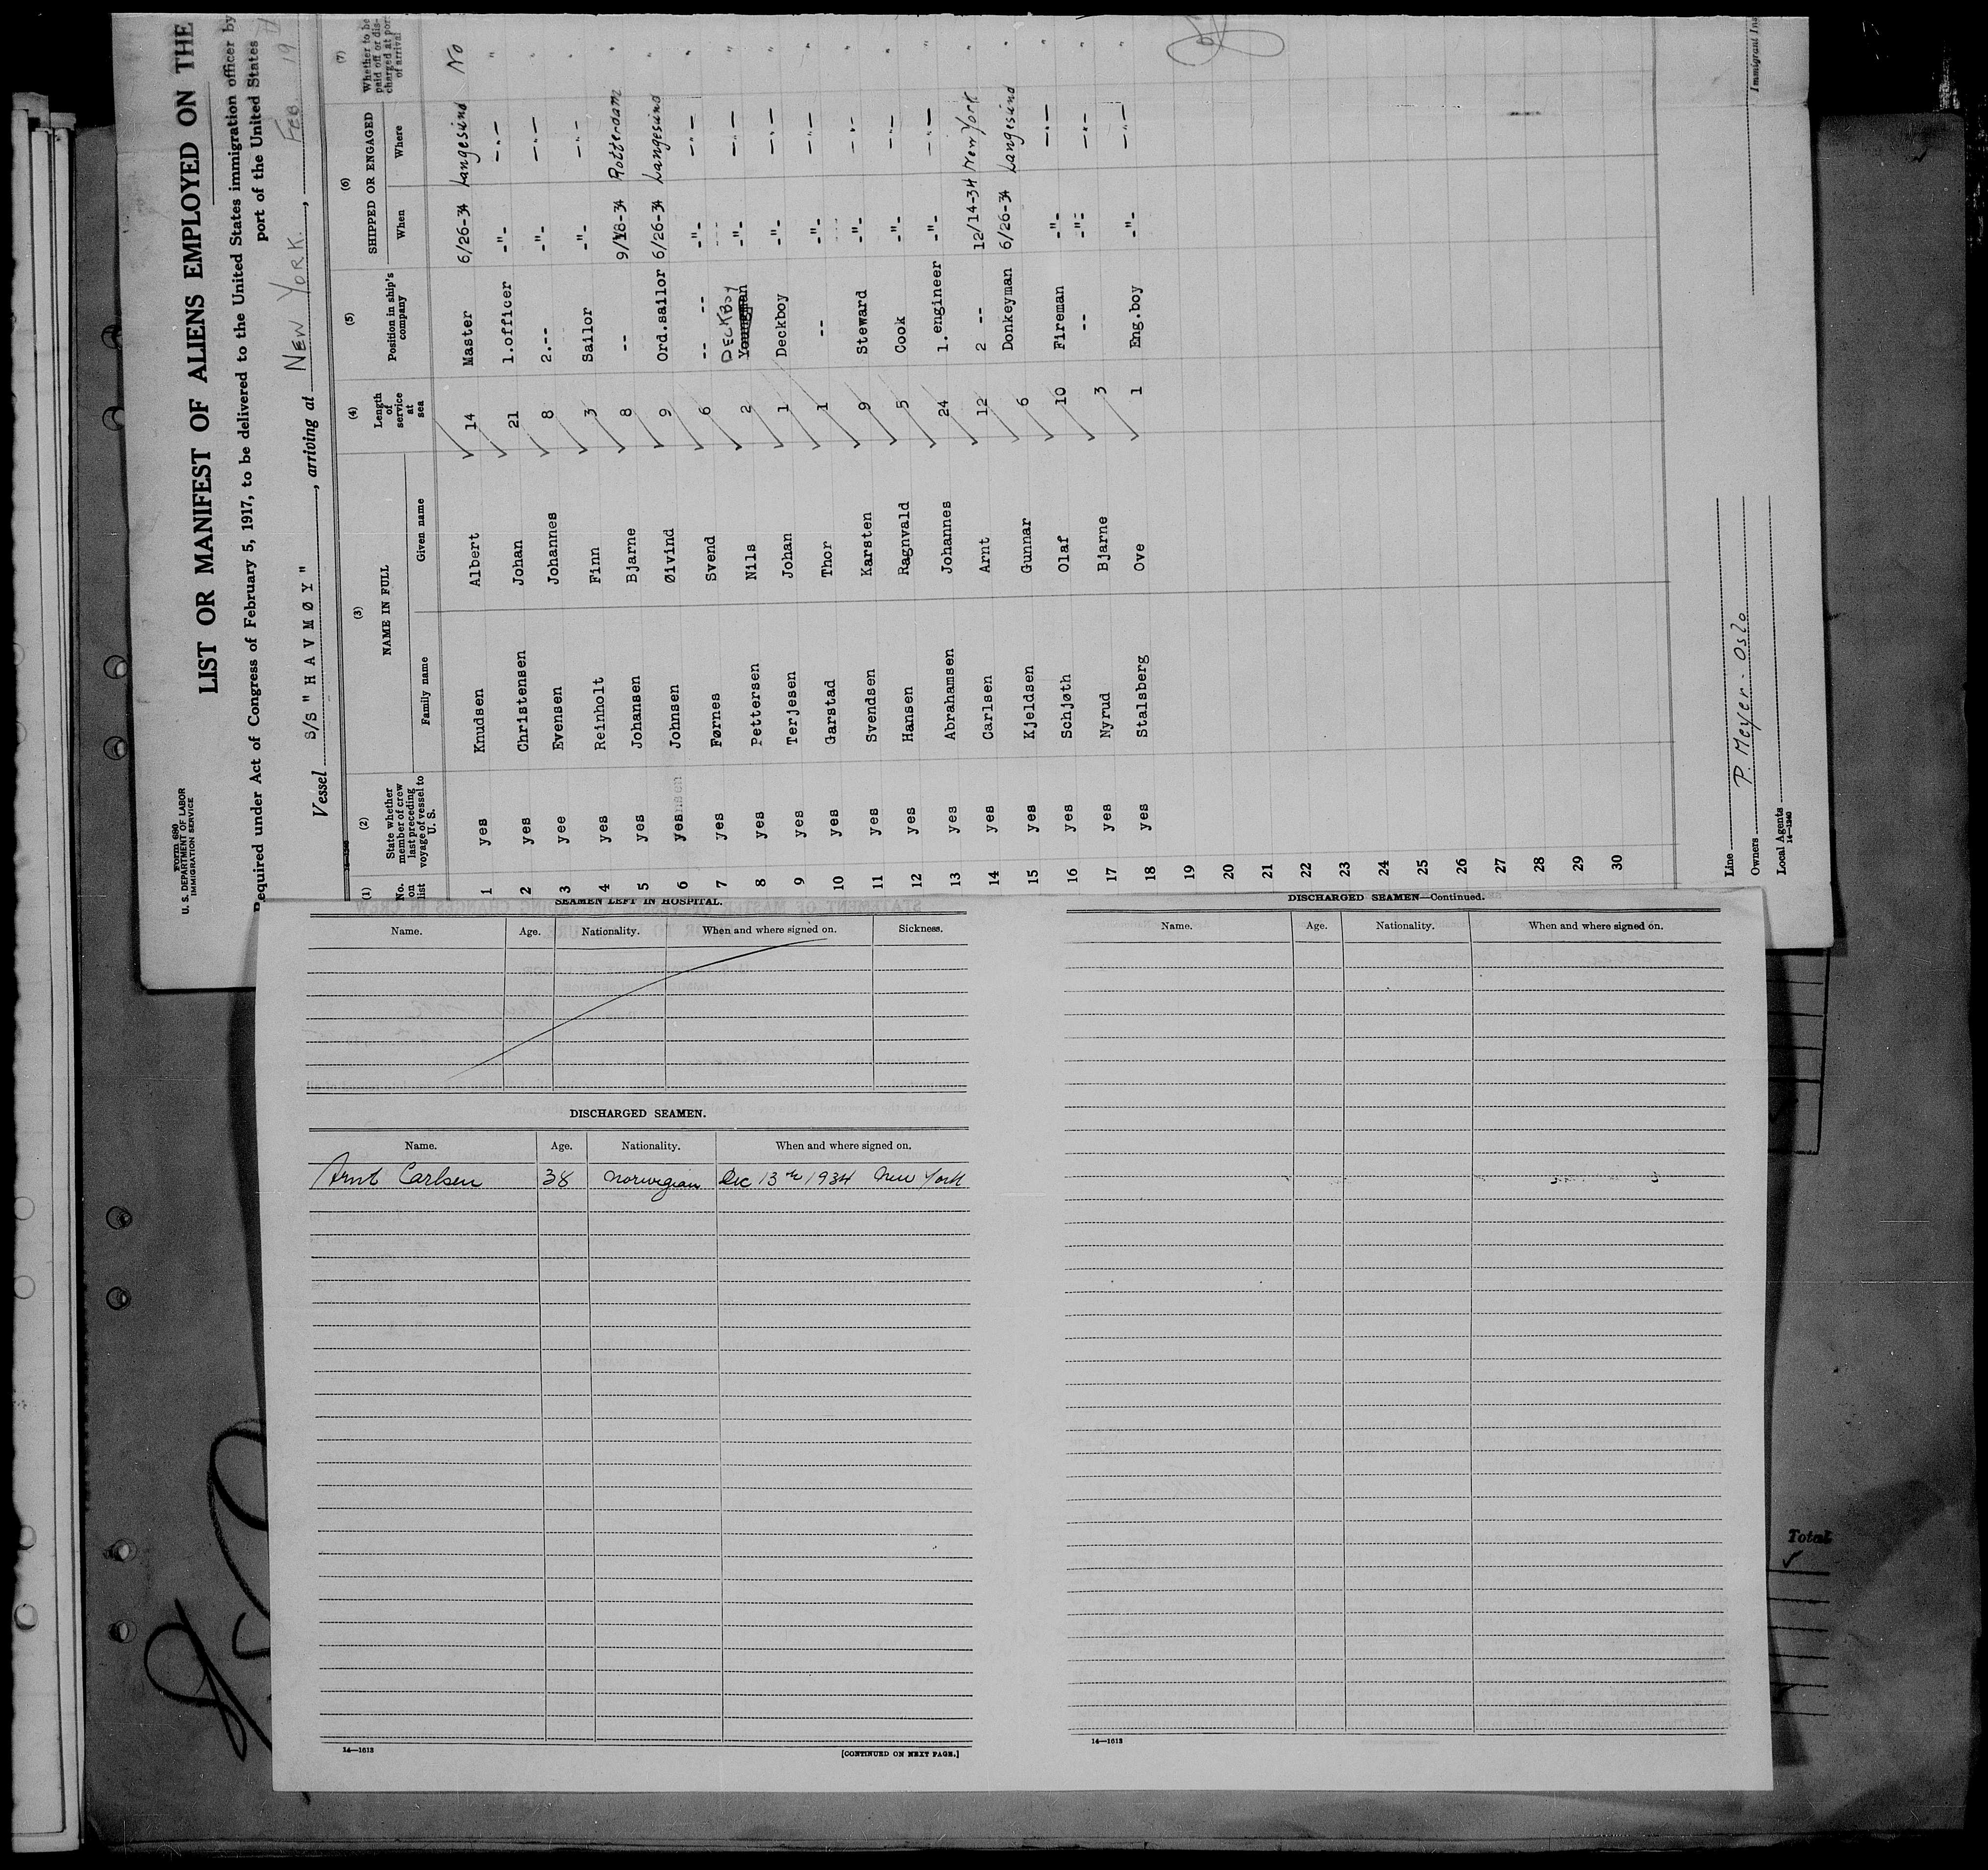 Form 680
U. S. DEPARTMENT OF LABOR
IMMIGRATION SERVICE
LIST OR MANIFEST OF ALIENS EMPLOYED ON THE
Required under Act of Congress of February 5, 1917, to be delivered to the United States immigration officer by
port of the United States
Vessel S/S "HAVMØY", arriving at NEW YORK., FEB. 19
(1) (2) (3) (4) (5) (6) (7)
No. on list State whether member of crew last preceding voyage of vessel to U. S. NAME IN FULL Family name Given name Length of service at sea Position in ship's company SHIPPED OR ENGAGED When Where Whether to be paid off or discharged at port of arrival
1 yes Knudsen Albert 14 Master 6/26-34 Langesund No
2 yes Christensen Johan 21 1.officer -"- -"- "
3 yee Evensen Johannes 8 2.-- -"- -"- "
4 yes Reinholt Finn 3 Sailor -"- -"- "
5 yes Johansen Bjarne 8 -- 9/18-34 Rotterdam "
6 yes Johnsen Øivind 9 Ord.sailor 6/26-34 Langesund "
7 yes Førnes Svend 6 -- -- -"- -"- "
8 yes Pettersen Nils 2 DECKBOY -"- -"- "
9 yes Terjesen Johan 1 Deckboy -"- -"- "
10 yes Garstad Thor 1 -- -"- -"- "
11 yes Svendsen Karsten 9 Steward -"- -"- "
12 yes Hansen Ragnvald 5 Cook -"- -"- "
13 yes Abrahamsen Johannes 24 1.engineer -"- -"- "
14 yes Carlsen Arnt 12 2 -- 12/14-34 New York "
15 yes Kjeldsen Gunnar 6 Donkeyman 6/26-34 Langesund "
16 yes Schjøth Olaf 10 Fireman -"- -"- "
17 yes Nyrud Bjarne 3 -- -"- -"- "
18 yes Stalsberg Ove 1 Eng.boy -"- -"- "
19
20
21
22
23
24
25
26
27
28
29
30
Line
Owners P. Meyer - Oslo
Local Agents
14—1240
Immigrant Ins
SEAMEN LEFT IN HOSPITAL.
Name. Age. Nationality. When and where signed on. Sickness.
DISCHARGED SEAMEN.
Name. Age. Nationality. When and where signed on.
Arnt Carlsen 38 Norwegian Dec 13th 1934 New York
14—1613
[CONTINUED ON NEXT PAGE.]
DISCHARGED SEAMEN—Continued.
Name. Age. Nationality. When and where signed on.
14—1613
Total